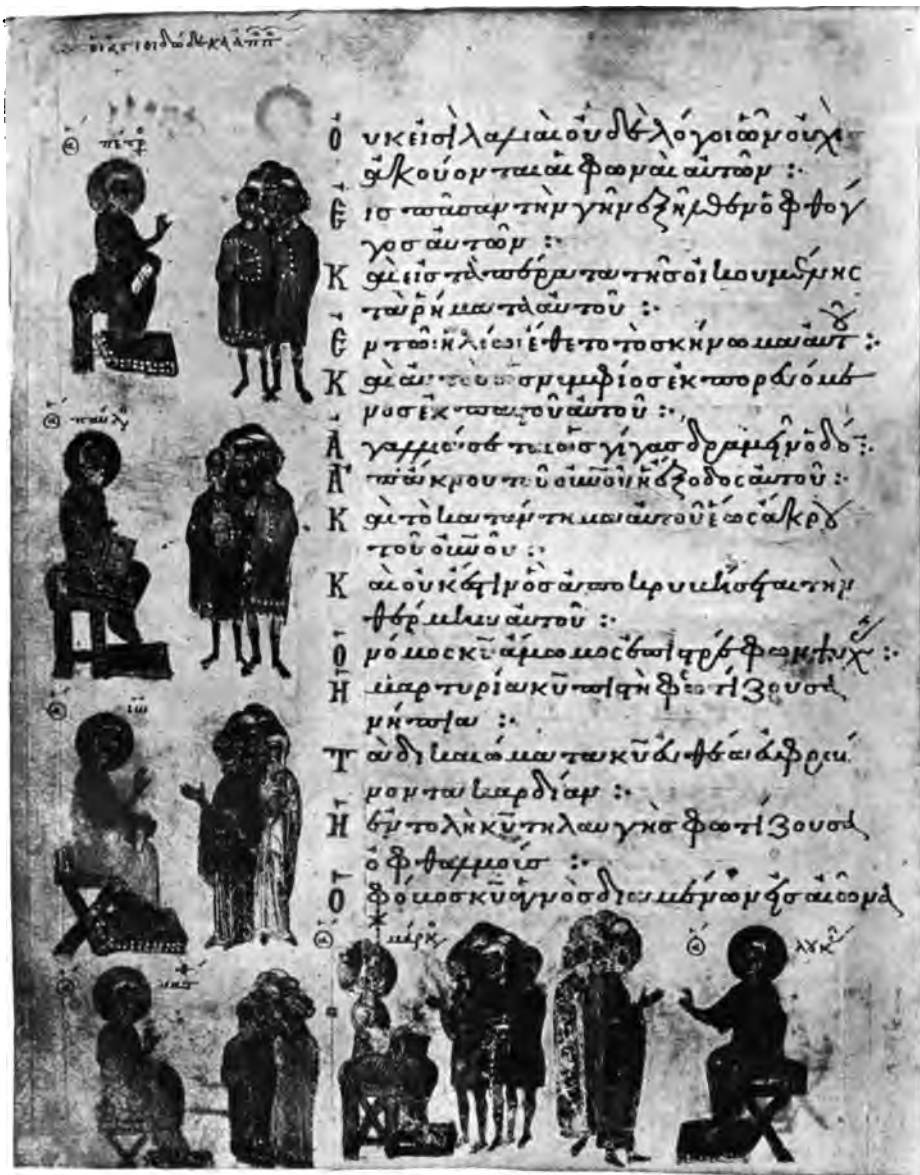 οἱ ἅγιοι δώδεκα ἀπ̅π̅
πέτρ
Οὐκ εἰσὶ λαλιαὶ οὐδὲ λόγοι ὧν οὐχὶ
ἀκούονται αἱ φωναὶ αὐτῶν :·
Εἰς πᾶσαν τὴν γῆν ἐξῆλθεν ὁ φθόγ
γος αὐτῶν :·
Καὶ εἰς τὰ πέρατα τῆς οἰκουμένης
τὰ ῥήματα αὐτοῦ :·
Ἐν τῶ ἡλίω ἔθετο τὸ σκήνωμα αὐτȣ :·
Καὶ αὐτὸς ὡς νυμφίος ἐκπορευόμε
νος ἐκ παστοῦ αὐτοῦ :·
παῦλ
Ἀγαλλιάσεται ὡς γίγας δραμεῖν ὁδό :·
Ἀπ' ἄκρου τοῦ οὐ̅ν̅οῦ ἡ ἔξοδος αὐτοῦ :·
Καὶ τὸ κατάντημα αὐτοῦ ἕως ἄκρȣ
τοῦ οὐ̅ν̅οῦ :·
Καὶ οὐκ ἔστιν ὃς ἀποκρυβήσεται τὴν
θέρμην αὐτοῦ :·
Ὁ νόμος κ̅υ̅ ἄμωμος ἐπιστρέφων ψυχ :·
Ἡ μαρτυρία κ̅υ̅ πιστὴ σοφίζουσα
νήπια :·
ιω
Τὰ δικαιώματα κ̅υ̅ εὐθέα εὐφραί
νοντα καρδίαν :·
Ἡ ἐντολὴ κ̅υ̅ τηλαυγὴς φωτίζουσα
ὀφθαλμούς :·
Ὁ φόβος κ̅υ̅ ἁγνὸς διαμένων εἰς αἰῶνα
ματ
μάρκ
λουκ